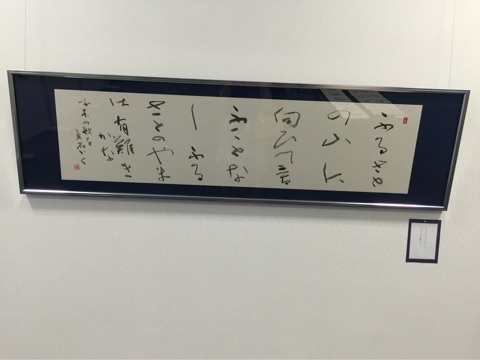 ふるさと
の山に
向ひて言
ふことな
し ふる
さとのやま
は有難き
かな
啄木の歌を